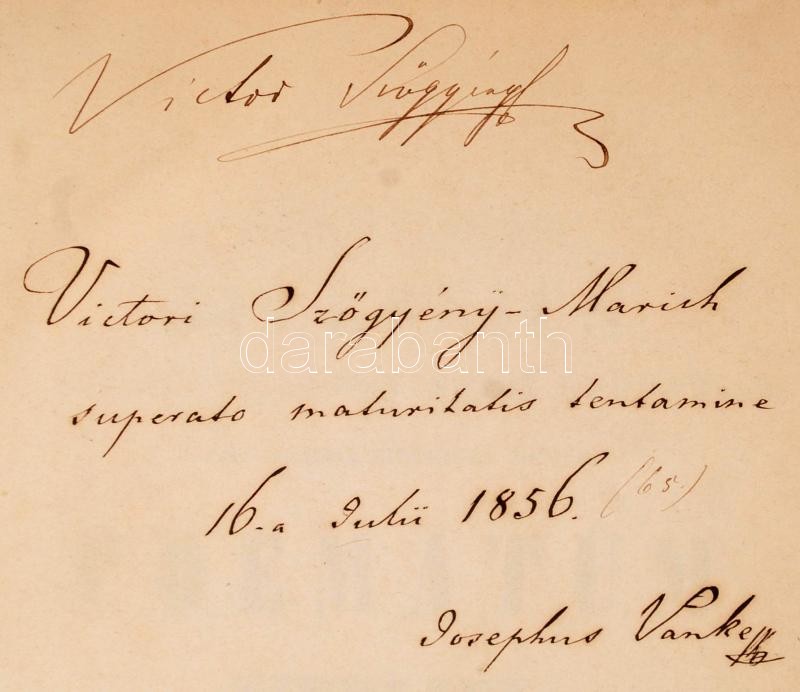 Victor Szögyény
Victori Szögyényÿ - Marich
darabanth
superato maturitatis tentamine
16-a Julii 1856. (65.)
Josephus Vanke